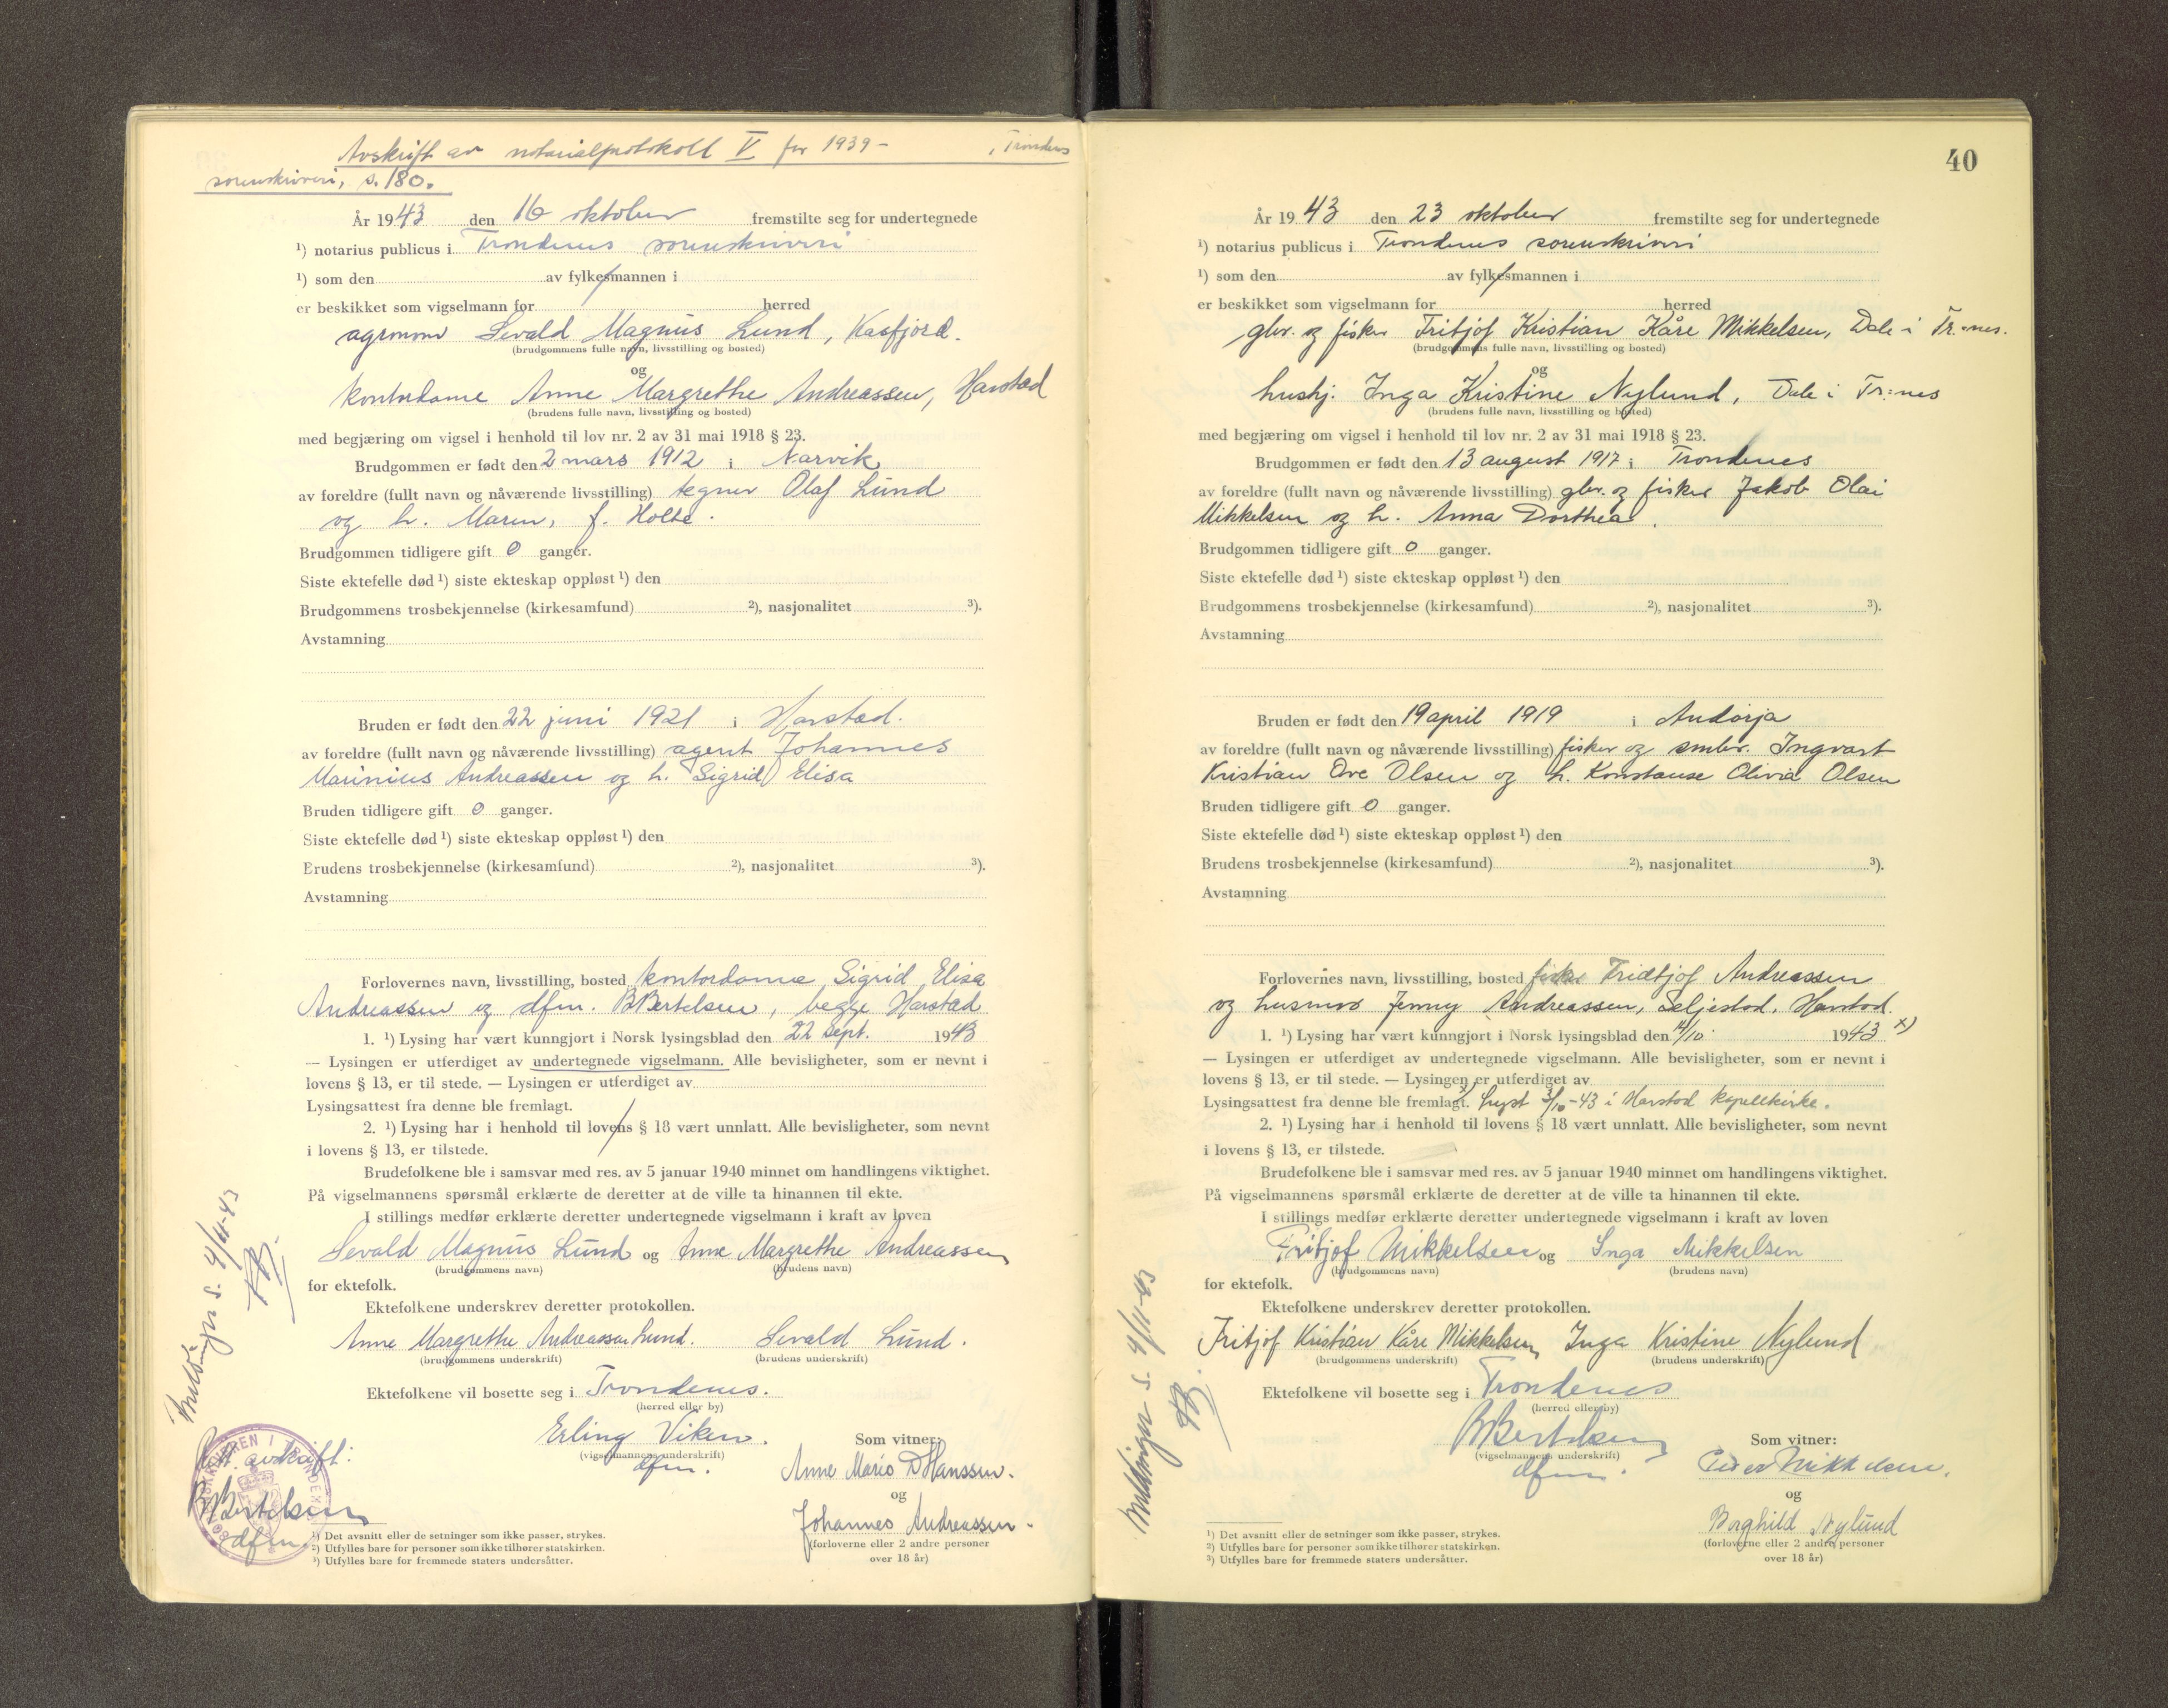 Avskrift av notarialprotokoll V for 1939 - i Trondenes
sorenskriveri, s. 180.
År 1943 den 16 oktober fremstilte seg for undertegnede
¹) notarius publicus i Trondenes sorenskriveri
¹) som den av fylkesmannen i
er beskikket som vigselmann for herred
agronom Sevald Magnus Lund, Kasfjord.
(brudgommens fulle navn, livsstilling og bosted)
og
kontordame Anne Margrethe Andreassen, Harstad
(brudens fulle navn, livsstilling og bosted)
med begjæring om vigsel i henhold til lov nr. 2 av 31 mai 1918 § 23.
Brudgommen er født den 2 mars 1912 i Narvik
av foreldre (fullt navn og nåværende livsstilling) tegner Olaf Lund
og h. Maren, f. Holte.
Brudgommen tidligere gift 0 ganger.
Siste ektefelle død ¹) siste ekteskap oppløst ¹) den
Brudgommens trosbekjennelse (kirkesamfund) ²), nasjonalitet ³).
Avstamning
Bruden er født den 22 juni 1921 i Harstad.
av foreldre (fullt navn og nåværende livsstilling) agent Johannes
Marinius Andreassen og h. Sigrid Elisa
Bruden tidligere gift 0 ganger.
Siste ektefelle død ¹) siste ekteskap oppløst ¹) den
Brudens trosbekjennelse (kirkesamfund) ²), nasjonalitet ³).
Avstamning
Forlovernes navn, livsstilling, bosted kontordame Sigrid Elisa
Andreassen og dfm. B Bertelsen, begge Harstad
1. ¹) Lysing har vært kunngjort i Norsk lysingsblad den 22 sept. 1943
— Lysingen er utferdiget av undertegnede vigselmann. Alle bevisligheter, som er nevnt i
lovens § 13, er til stede. — Lysingen er utferdiget av
Lysingsattest fra denne ble fremlagt.
2. ¹) Lysing har i henhold til lovens § 18 vært unnlatt. Alle bevisligheter, som nevnt
i lovens § 13, er tilstede.
Brudefolkene ble i samsvar med res. av 5 januar 1940 minnet om handlingens viktighet.
På vigselmannens spørsmål erklærte de deretter at de ville ta hinannen til ekte.
I stillings medfør erklærte deretter undertegnede vigselmann i kraft av loven
Sevald Magnus Lund og Anne Margrethe Andreassen
(brudgommens navn) (brudens navn)
for ektefolk.
Ektefolkene underskrev deretter protokollen.
Anne Margrethe Andreassen Lund. Sevald Lund.
(brudgommens underskrift) (brudens underskrift)
Ektefolkene vil bosette seg i Trondenes.
(herred eller by)
Erling Viken.
(vigselmannens underskrift)
dfm.
Som vitner:
Anne Marie D Hanssen.
og
Johannes Andreassen.
(forloverne eller 2 andre personer
over 18 år)
Meldinger s. 4/11-43
Rett avskrift:
B Bertelsen
dfm.
¹) Det avsnitt eller de setninger som ikke passer, strykes.
²) Utfylles bare for personer som ikke tilhører statskirken.
³) Utfylles bare for fremmede staters undersåtter.
40
År 1943 den 23 oktober fremstilte seg for undertegnede
¹) notarius publicus i Trondenes sorenskriveri
¹) som den av fylkesmannen i
er beskikket som vigselmann for herred
gbr. og fisker Fritjof Kristian Kåre Mikkelsen, Dale i Tr:nes.
(brudgommens fulle navn, livsstilling og bosted)
og
hushj. Inga Kristine Nylund, Dale i Tr:nes
(brudens fulle navn, livsstilling og bosted)
med begjæring om vigsel i henhold til lov nr. 2 av 31 mai 1918 § 23.
Brudgommen er født den 13 august 1917 i Trondenes
av foreldre (fullt navn og nåværende livsstilling) gbr. og fisker Jakob Olai
Mikkelsen og h. Anna Dorthea.
Brudgommen tidligere gift 0 ganger.
Siste ektefelle død ¹) siste ekteskap oppløst ¹) den
Brudgommens trosbekjennelse (kirkesamfund) ²), nasjonalitet ³).
Avstamning
Bruden er født den 19 april 1919 i Andørja
av foreldre (fullt navn og nåværende livsstilling) fisker og smbr. Ingvart
Kristian Ove Olsen og h. Konstanse Olivia Olsen
Bruden tidligere gift 0 ganger.
Siste ektefelle død ¹) siste ekteskap oppløst ¹) den
Brudens trosbekjennelse (kirkesamfund) ²), nasjonalitet ³).
Avstamning
Forlovernes navn, livsstilling, bosted fisker Fridtjof Andreassen
og husmor Jenny Andreassen, Seljestad, Harstad.
1. ¹) Lysing har vært kunngjort i Norsk lysingsblad den /10 1943 x)
— Lysingen er utferdiget av undertegnede vigselmann. Alle bevisligheter, som er nevnt i
lovens § 13, er til stede. — Lysingen er utferdiget av
Lysingsattest fra denne ble fremlagt. x) Lyst 3/10-43 i Harstad kapellkirke.
2. ¹) Lysing har i henhold til lovens § 18 vært unnlatt. Alle bevisligheter, som nevnt
i lovens § 13, er tilstede.
Brudefolkene ble i samsvar med res. av 5 januar 1940 minnet om handlingens viktighet.
På vigselmannens spørsmål erklærte de deretter at de ville ta hinannen til ekte.
I stillings medfør erklærte deretter undertegnede vigselmann i kraft av loven
Fritjof Mikkelsen og Inga Mikkelsen
(brudgommens navn) (brudens navn)
for ektefolk.
Ektefolkene underskrev deretter protokollen.
Fritjof Kristian Kåre Mikkelsen Inga Kristine Nylund
(brudgommens underskrift) (brudens underskrift)
Ektefolkene vil bosette seg i Trondenes
(herred eller by)
B Bertelsen
(vigselmannens underskrift)
dfm.
Som vitner:
Peder Mikkelsen.
og
Borghild Nylund
(forloverne eller 2 andre personer
over 18 år)
Meldinger s. 4/11-43
¹) Det avsnitt eller de setninger som ikke passer, strykes.
²) Utfylles bare for personer som ikke tilhører statskirken.
³) Utfylles bare for fremmede staters undersåtter.